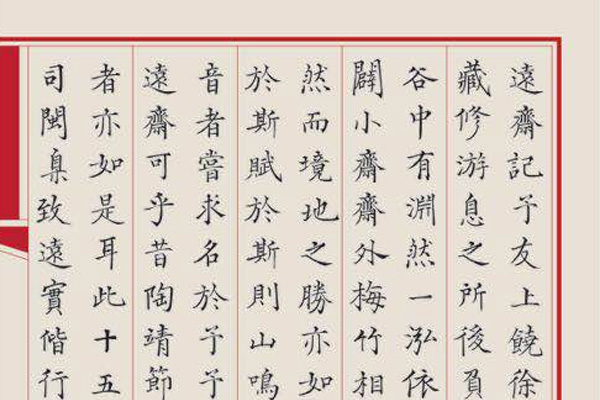 遠齋記予友上饒徐
藏修游息之所後負
谷中有淵然一泓依
闢小齋齋外梅竹相
然而境地之勝亦如
於斯賦於斯則山鳴
音者嘗求名於予予
遠齋可乎昔陶靖節
者亦如是耳此十五
司閩臬致遠實偕行